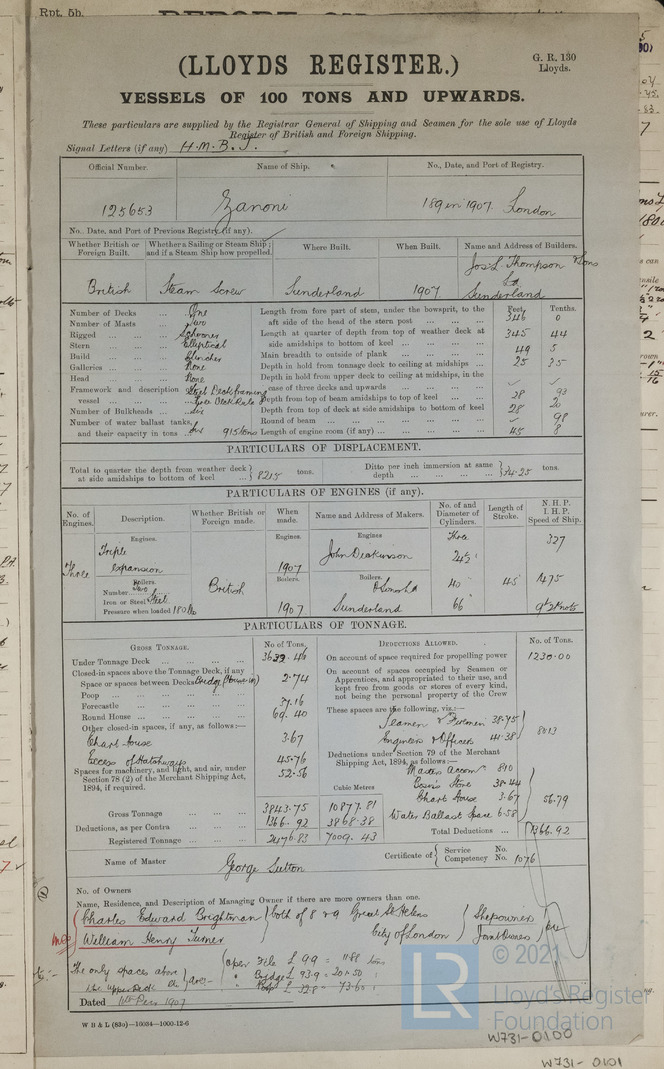 Rpt. 5b.
(LLOYDS REGISTER.)
G. R. 130
Lloyds.
VESSELS OF 100 TONS AND UPWARDS.
These particulars are supplied by the Registrar General of Shipping and Seamen for the sole use of Lloyds
Register of British and Foreign Shipping.
Signal Letters (if any) H.M.B.J.
Official Number. Name of Ship. No., Date, and Port of Registry.
125653 Zanoni 189 in 1907. London
No., Date, and Port of Previous Registry (if any).
Whether British or Foreign Built. Whether a Sailing or Steam Ship; and if a Steam Ship how propelled. Where Built. When Built. Name and Address of Builders.
British Steam Screw Sunderland 1907. Jos. L. Thompson & Sons Ld Sunderland
Feet. Tenths.
Number of Decks ... One Length from fore part of stem, under the bowsprit, to the
Number of Masts ... Two aft side of the head of the stern post ... 346 0
Rigged ... Schooner Length at quarter of depth from top of weather deck at
Stern ... Elliptical side amidships to bottom of keel ... 345 44
Build ... Clincher Main breadth to outside of plank ... 49 5
Galleries ... None Depth in hold from tonnage deck to ceiling at midships ... 25 35
Head ... None Depth in hold from upper deck to ceiling at midships, in the
Framework and description of vessel ... Steel Deck framing case of three decks and upwards ...
Depth from top of beam amidships to top of keel ... 28 93
Number of Bulkheads ... Six Depth from top of deck at side amidships to bottom of keel 28 20
Number of water ballast tanks, Round of beam ... 98
and their capacity in tons ... Six 915 tons Length of engine room (if any) ... 45 8
PARTICULARS OF DISPLACEMENT.
Total to quarter the depth from weather deck at side amidships to bottom of keel ... 8215 tons. Ditto per inch immersion at same depth ... 34.25 tons.
PARTICULARS OF ENGINES (if any).
No. of Engines. Description. Whether British or Foreign made. When made. Name and Address of Makers. No. of and Diameter of Cylinders. Length of Stroke. N. H. P. I. H. P. Speed of Ship.
Engines. Engines. Engines
Three Triple expansion British 1907 John Dickinson & Sons Ld Three 24½ 327
Boilers. Boilers. Boilers.
Number Two 40 45 1475
Iron or Steel Steel
Pressure when loaded 180 lb 1907 Sunderland 66 9½ knots
PARTICULARS OF TONNAGE.
GROSS TONNAGE. No. of Tons. DEDUCTIONS ALLOWED. No. of Tons.
Under Tonnage Deck ... 3632.46 On account of space required for propelling power 1230.00
Closed-in spaces above the Tonnage Deck, if any On account of spaces occupied by Seamen or
Space or spaces between Decks 2.74 Apprentices, and appropriated to their use, and
Poop ... kept free from goods or stores of every kind,
Forecastle ... 37.16 not being the personal property of the Crew
Round House ... 69.40 These spaces are the following, viz.:—
Other closed-in spaces, if any, as follows:— Seamen & Firemen 38.75
Chart House 3.67 Engineers & Officers 41.38 80.13
Excess of Hatchways 45.76 Deductions under Section 79 of the Merchant
Spaces for machinery, and light, and air, under Shipping Act, 1894, as follows:—
Section 78 (2) of the Merchant Shipping Act, 52.56 Masters accom 8.10
1894, if required. Cubic Metres Bosn's Store 38.44
Chart House 3.67 56.79
Gross Tonnage 3843.75 10877.81 Water Ballast Space 6.58
Deductions, as per Contra ... 1366.92 3868.38
Registered Tonnage ... 2476.83 7009.43 Total Deductions ... 1366.92
Name of Master George Sutton Certificate of Service No. Competency No. 1076
No. of Owners
Name, Residence, and Description of Managing Owner if there are more owners than one.
Charles Edward Brightman both of 8 & 9 Great St Helens Shipowners
William Henry Turner City of London Joint Owners
The only spaces above the upper deck are:- open File £ 99 = 11.88 tons
Bridge £ 93.9 = 201.50
Dated 10th Dec. 1907
W B & L (83o)—10034—1000-12-6
© 2021
LR
Lloyd's Register
Foundation
W731-0100
W731-0101